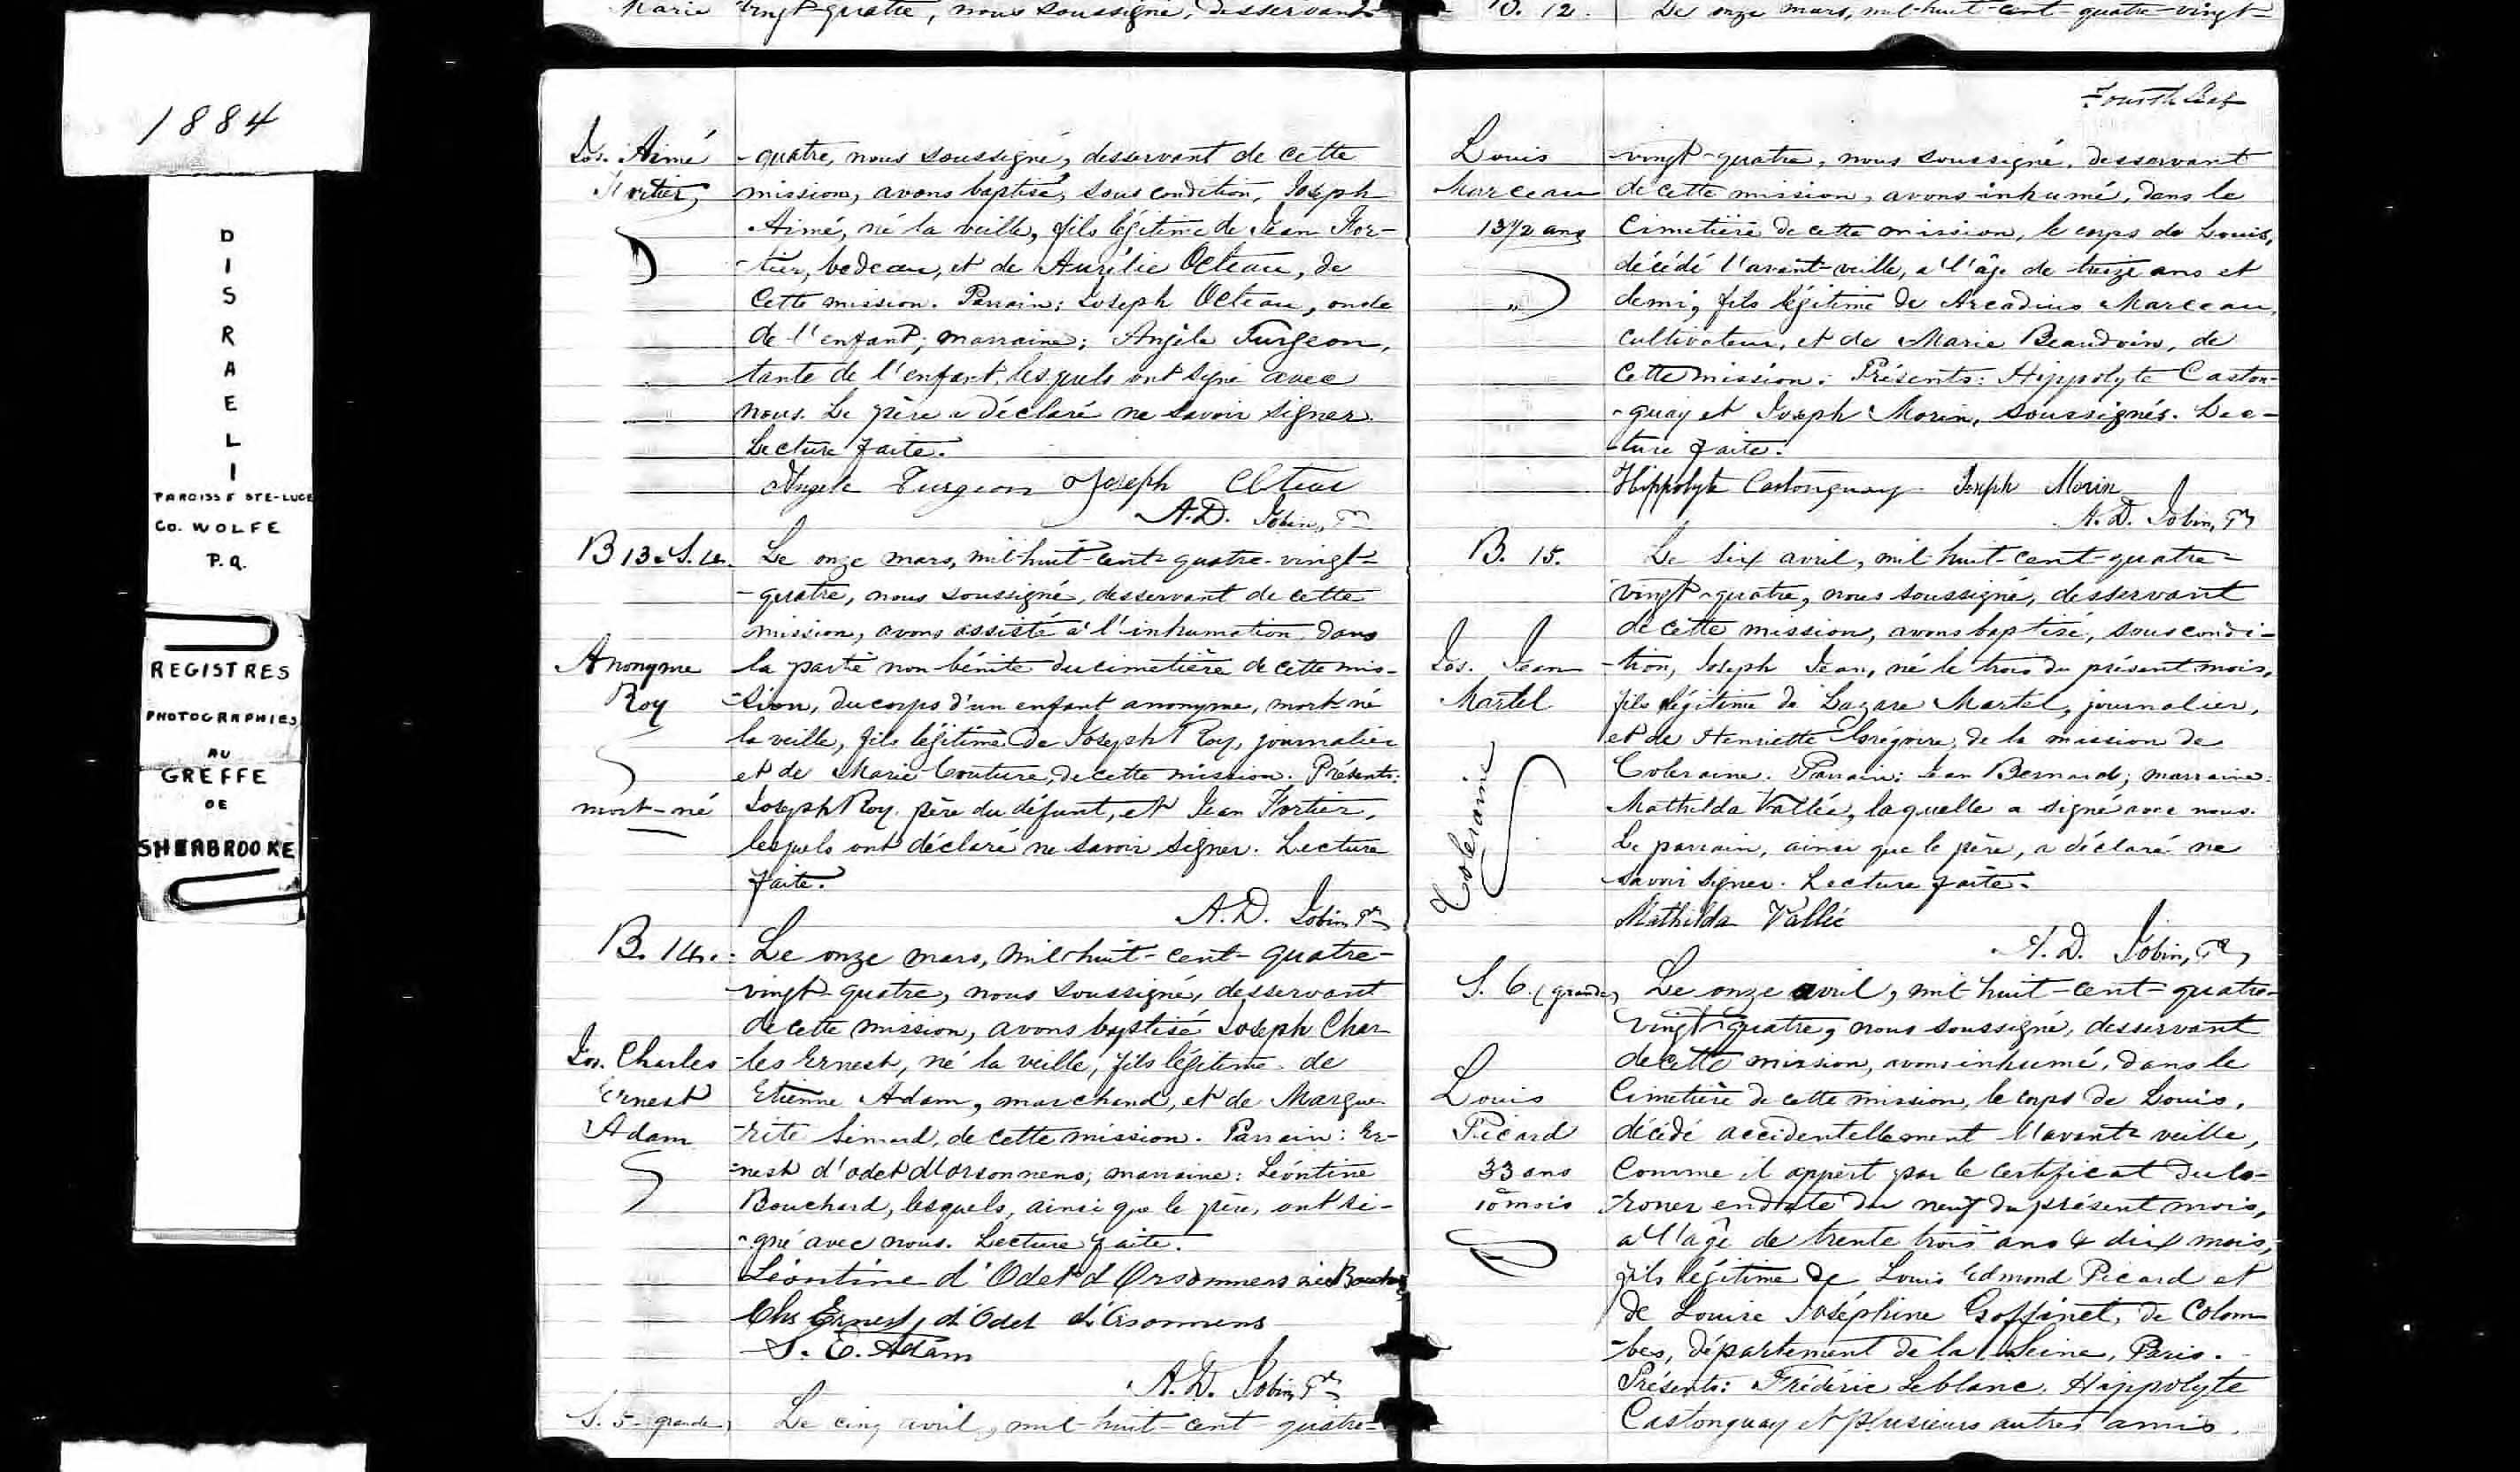 Marie vingt-quatre, nous soussigné, desservant
B. 12. Le onze mars, mil-huit-cent-quatre-vingt-
1884
D
I
S
R
A
E
L
I
PAROISSE STE-LUCE
Co. WOLFE
P.Q.
REGISTRES
PHOTOGRAPHIES
AU
GREFFE
DE
SHERBROOKE
Jos. Aimé -quatre, nous soussigné, desservant de cette
Fortier, mission, avons baptisé, sous condition, Joseph
Aimé, né la veille, fils légitime de Jean For-
-tier, bedeau, et de Aurélie Octeau, de
cette mission. Parrain: Joseph Octeau, oncle
de l'enfant; marraine: Angèle Turgeon,
tante de l'enfant, lesquels ont signé avec
nous. Le père a déclaré ne savoir signer.
Lecture faite.
Angele Turgeon Joseph Octeau
A.D. Jobin, Ptre
B 13. S. 4. Le onze mars, mil-huit-cent-quatre-vingt-
-quatre, nous soussigné, desservant de cette
mission, avons assisté à l'inhumation, dans
Anonyme la partie non bénite du cimetière de cette mis-
Roy -sion, du corps d'un enfant anonyme, mort-né
la veille, fils légitime de Joseph Roy, journalier
et de Marie Couture, de cette mission. Présents:
mort-né Joseph Roy, père du défunt, et Jean Fortier,
lesquels ont déclaré ne savoir signer. Lecture
faite.
A.D. Jobin Ptre
B. 14. Le onze mars, mil-huit-cent-quatre-
vingt-quatre, nous soussigné, desservant
de cette mission, avons baptisé Joseph Char-
Jos. Charles -les Ernest, né la veille, fils légitime de
Ernest Etienne Adam, marchand, et de Margue-
Adam -rite Simard, de cette mission. Parrain: Er-
-nest d'odet d'Orsonnens; marraine: Léontine
Bouchard, lesquels, ainsi que le père, ont si-
-gné avec nous. Lecture faite.
Léontine d'Odet d'Orsonnens née
Chs Ernest d'Odet d'Orsonnens
S. E. Adam
A.D. Jobin Ptre
S. 5 - grande, Le cinq avril, mil-huit-cent-quatre-
Fourth Leaf
Louis vingt-quatre, nous soussigné, desservant
Marceau de cette mission, avons inhumé, dans le
13 1/2 ans Cimetière de cette mission, le corps de Louis,
décédé l'avant-veille, a l'âge de treize ans et
demi, fils légitime de Arcadius Marceau,
cultivateur, et de Marie Beaudoin, de
cette mission. Présents: Hippolyte Caston-
-guay et Joseph Morin, soussignés. Lec-
-ture faite.
Hippolyte Castonguay Joseph Morin
A.D. Jobin, Ptre
B. 15. Le six avril, mil-huit-cent-quatre-
vingt-quatre, nous soussigné, desservant
de cette mission, avons baptisé, sous condi-
Jos. Jean -tion, Joseph Jean, né le trois du présent mois,
Martel fils légitime de Lazare Martel, journalier,
et de Henriette Grégoire, de la mission de
Coleraine Coleraine. Parrain: Jean Bernard; marraine:
Mathilda Vallée, laquelle a signé avec nous.
Le parrain, ainsi que le père, a déclaré ne
savoir signer. Lecture faite.
Mathilda Vallée
A.D. Jobin, Ptre
S. 6. (grande) Le onze avril, mil-huit-cent-quatre-
vingt-quatre, nous soussigné, desservant
de cette mission, avons inhumé, dans le
Louis Cimetière de cette mission, le corps de Louis,
Picard décédé accidentellement l'avant-veille,
33 ans comme il appert par le certificat du Co-
10 mois -roner en date du neuf du présent mois,
a l'âge de trente trois ans & dix mois,
fils légitime de Louis Edmond Picard et
de Louise Joséphine Goffinet, de Colom-
-bes, département de la Seine, Paris.
Présents: Frédéric Leblanc, Hippolyte
Castonguay et plusieurs autres amis.